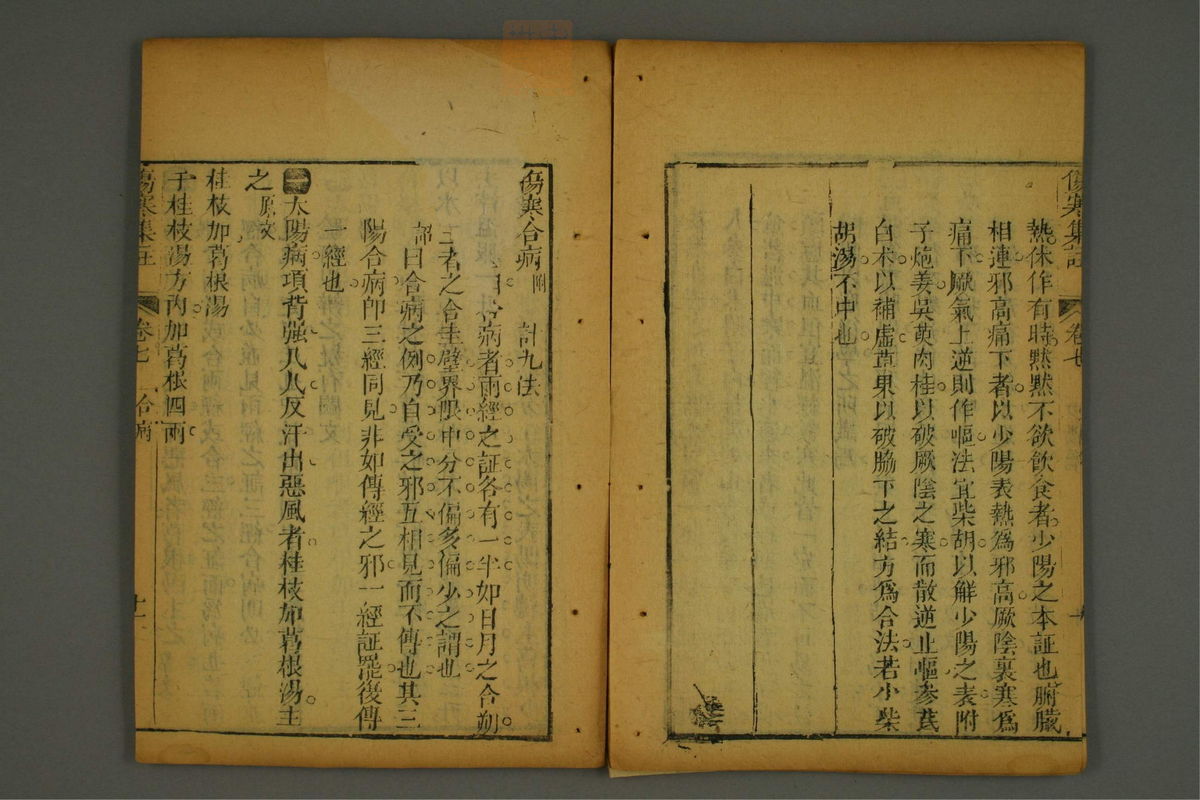 傷寒集註
卷七
熱休作有時黙黙不欲飲食者少陽之本証也腑臟
相連邪高痛下者以少陽表熱爲邪高厥陰裏寒爲
痛下厥氣上逆則作嘔法宜柴胡以解少陽之表附
子炮姜吳萸肉桂以破厥陰之寒而散逆止嘔參茋
白术以補虛草果以破脇下之結方爲合法若小柴
胡湯不中也
傷寒合病 附 計九法
曰合病者兩經之証各有一半如日月之合朔
王者之合圭璧界限中分不偏多偏少之謂也
曰合病之例乃自受之邪互相見而不傳也其三
陽合病即三經同見非如傳經之邪一經証罷後傳
一經也
一 太陽病項背强几几反汗出惡風者桂枝加葛根湯主
之 原文
桂枝加葛根湯
于桂枝湯方內加葛根四兩
傷寒集註
卷七 合病
十一